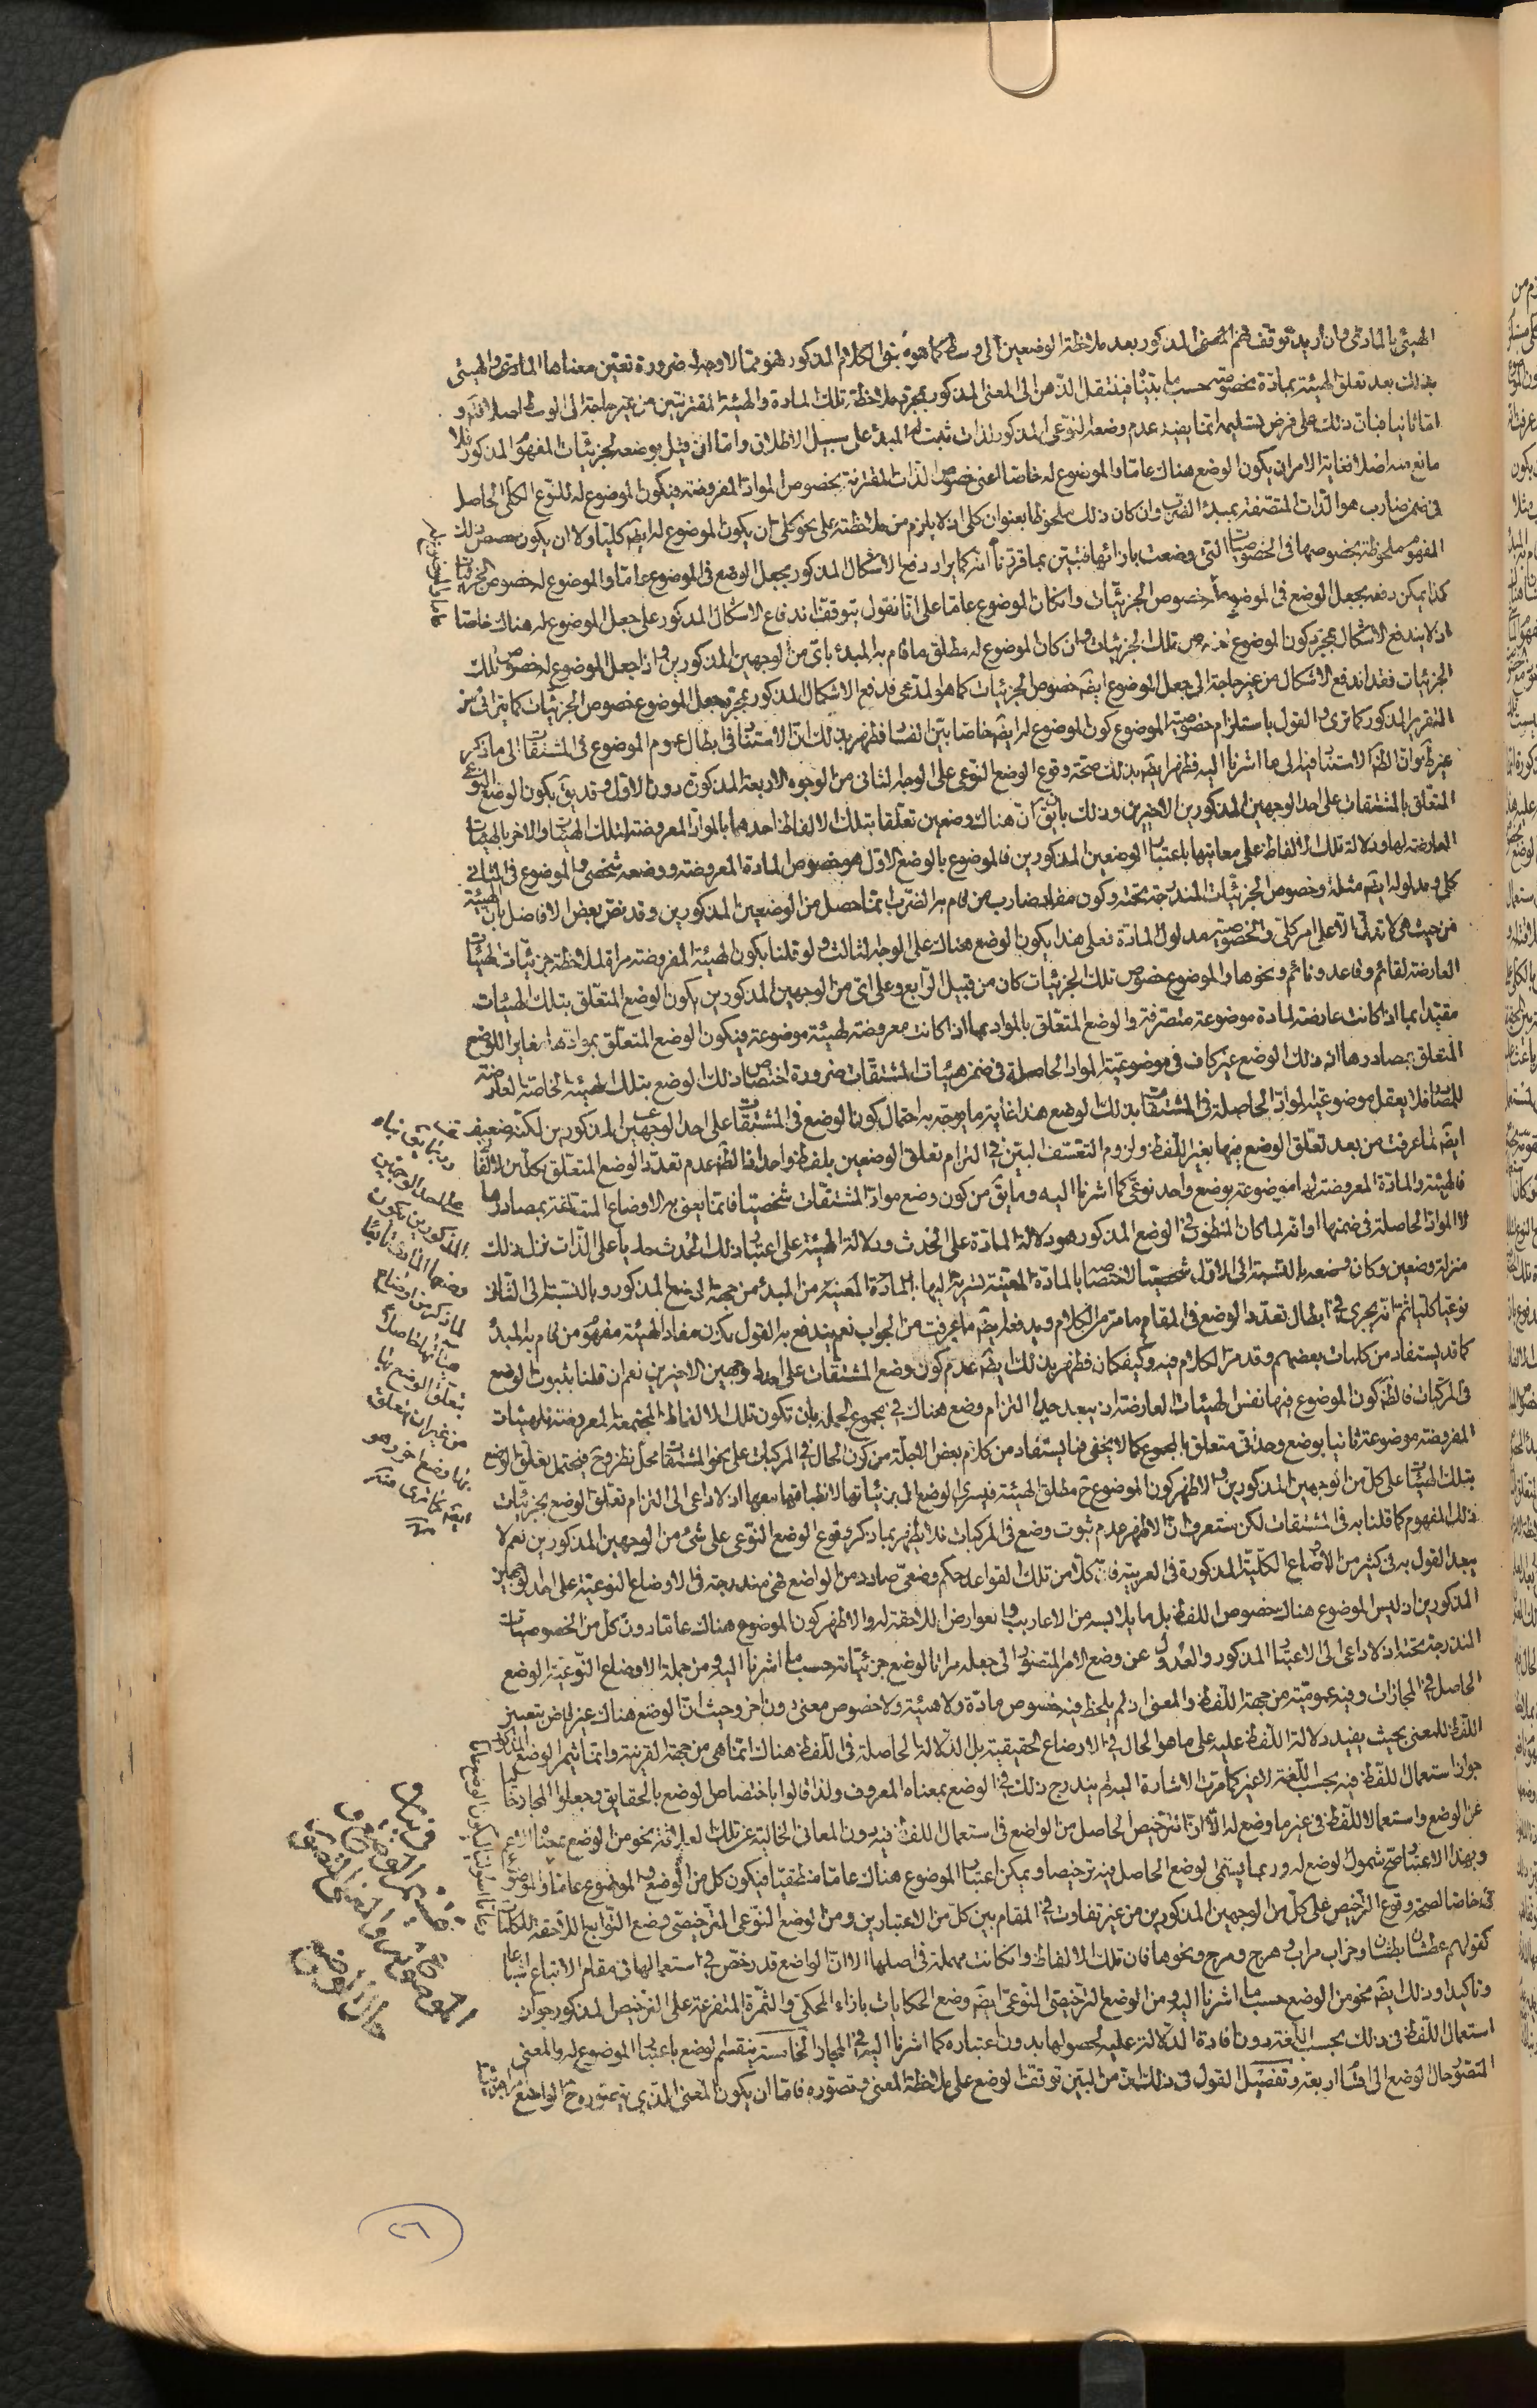 الهيئى بالمادى وان اريد توقف فهم المعنى المذكور بعد ملاحظة الوضعين الى وسط كما هو الكلام المذكور فهو مما لا وجه له ضرورة تعين معناها المادى والهيئى
بذلك بعد تعلق الهيئة بمادة مخصوصة حسب ما بينا فينتقل الذهن الى المعنى المذكور بمجرد ملاحظة تلك المادة والهيئة المقترنتين من غير حاجة الى الوسط اصلا و
اما ثانيا فبان ذلك على فرض تسليمه انما يفيد عدم وضعه النوعى المذكور لذات ثبت له المبدء على سبيل الاطلاق واما ان قيل بوضعه لجزئيات المفهوم المذكور فلا
مانع منه اصلا لغاية الامر ان يكون الوضع هناك عاما والموضوع له خاصا اعنى خصوص الذات المقترنة بخصوص المواد المفروضة فيكون الموضوع له للنوع الكلى الحاصل
فى ضمن ضارب هو الذات المتصفة بمبدء الضرب وان كان ذلك ملحوظا بعنوان كلى اذ لا يلزم من ملاحظته على نحو كلى ان يكون الموضوع له ايضا كليا ولا ان يكون
المفهوم ملحوظة بخصوصها فى الخصوصيات التى وضعت بازائها فتبين بما قررنا انه كما يراد دفع الاشكال المذكور بجعل الوضع فى الموضوع عاما والموضوع له خصوص الجزئيات
كذا يمكن دفعه بجعل الوضع فى الموضوع خصوص الجزئيات وان كان الموضوع عاما على انا نقول بتوقف اندفاع الاشكال المذكور على جعل الموضوع له هناك خاصا
اذ لا يندفع الاشكال بمجرد كون الموضوع خصوص تلك الجزئيات وان كان الموضوع له مطلق ما قام به المبدء باى من الوجهين المذكورين واذا جعل الموضوع له خصوص تلك
الجزئيات فقد اندفع الاشكال من غير حاجة الى جعل الموضوع ايضا خصوص الجزئيات كما هو المدعى فدفع الاشكال المذكور بمجرد جعل الموضوع خصوص الجزئيات كما
التقرير المذكور كما ترى والقول باستلزام خصوصية الموضوع كون الموضوع له ايضا خاصا بين الفساد فظهر بذلك ان الاستناد فى ابطال عموم الموضوع فى المشتقات الى ما ذكر
غير ظ وان الظ الاستناد فيه الى ما اشرنا اليه فظهر ايضا بذلك صحة وقوع الوضع النوعى على الوجه الثانى من الوجوه الاربعة المذكورة دون الاول وقد يق بكون الوضع النوعى
المتعلق بالمشتقات على احد الوجهين المذكورين الاخيرين وذلك بان يق ان هناك وضعين تعلقا بتلك الالفاظ احدهما بالمواد المعروضة لتلك الهيئات والاخر بالهيئات
العارضة لها ودلالة تلك الالفاظ على معانيها باعتبار الوضعين المذكورين فالموضوع بالوضع الاول هو خصوص المادة المعروضة ووضعه شخصى والموضوع فى الثانى
كلى ومدلوله ايضا مثله وخصوص الجزئيات المندرجة تحته وكون مفاد ضارب من قام به الضرب مما حصل من الوضعين المذكورين وقد نص بعض الافاضل بان الهيئة
من حيث هى لا تدل الا على امر كلى والخصوصية مدلول المادة فعلى هذا يكون الوضع هناك على الوجه الثالث ولو قلنا بكون الهيئة المفروضة مراة لملاحظة جزئيات الهيئات
العارضة لقائم وقاعد ونائم ونحوها والموضوع خصوص تلك الجزئيات كان من قبيل الرابع وعلى اى من الوجهين المذكورين يكون الوضع المتعلق بتلك الهيئات
مقيدا بما اذا كانت عارضة لمادة موضوعة متصرفة والوضع المتعلق بالمواد بما اذا كانت معروضة لهيئة موضوعة فيكون الوضع المتعلق بموادها مغايرا للوضع
المتعلق بمصادرها اذ ذلك الوضع غير كاف فى موضوعية المواد الحاصلة فى ضمن هيئات المشتقات ضرورة اختصاص ذلك الوضع بتلك الهيئة الخاصة العارضة
للمصادر فلا يعقل موضوعية المواد الحاصلة فى المشتقات بذلك الوضع هذا غاية ما يوجه به احتمال كون الوضع فى المشتقات على احد الوجهين المذكورين لكنه ضعيف
ايضا لما عرفت من بعد تعلق الوضع فيها بغير اللفظ ولزوم التعسف البين فى التزام تعلق الوضعين بلفظ واحد فالظ عدم تعدد الوضع المتعلق بكل من الالفاظ
فالهيئة والمادة المعروضة لها موضوعة بوضع واحد نوعى كما اشرنا اليه وما يق من كون وضع مواد المشتقات شخصيا فانما يعنى به الاوضاع المتعلقة بمصادرها
لا المواد الحاصلة فى ضمنها او انه لما كان المنظور فى الوضع المذكور هو دلالة المادة على الحدث ودلالة الهيئة على اعتبار ذلك الحدث جاريا على الذات نزل ذلك
منزلة وضعين وكان وضعه بالنسبة الى الاول شخصيا لاختصاصه بالمادة المعينة لسريته اليها المادة المعينة من المبدء من جهة الوضع المذكور وبالنسبة الى الثانى
نوعيا كليا ثم انه يجرى فى ابطال تعدد الوضع فى المقام ما مر من الكلام ويدفعه ايضا ما عرفت من الجواب نعم يندفع به القول بكون مفاد الهيئة مفهوم من قام به المبدء
كما قد يستفاد من كلمات بعضهم وقد مر الكلام فيه وكيف كان فظهر بذلك ايضا عدم كون وضع المشتقات على احد الوجهين الاخيرين نعم ان قلنا بثبوت الوضع
فى المركبات فالظ كون الموضوع فيها نفس الهيئات العارضة اذ يبعد جدا التزام وضع هناك فى مجموع الجملة بان تكون تلك الالفاظ المجتمعة المعروضة للهيئات
المفروضة موضوعة ثانيا بوضع وحدانى متعلق بالمجموع كما لا يخفى فما يستفاد من كلام بعض الاجلة من كون الحال فى المركبات على نحو المشتقات محل نظر وح فيحتمل تعلق الوضع
بتلك الهيئات على كل من الوجهين المذكورين والاظهر كون الموضوع ح مطلق الهيئة فيسرى الوضع الى جزئياتها لانطباقها معها اذ لا داعى الى التزام تعلق الوضع بجزئيات
ذلك المفهوم كما قلنا به فى المشتقات لكن ستعرف ان الاظهر عدم ثبوت وضع فى المركبات فلا يظهر بما ذكر وقوع الوضع النوعى على شئ من الوجهين المذكورين نعم لا
يبعد القول به فى كثير من الاوضاع الكلية المذكورة فى العربية فان كلا من تلك القواعد حكم وضعى صادر من الواضع فهى مندرجة فى الاوضاع النوعية على احد الوجهين
المذكورين اذ ليس الموضوع هناك خصوص اللفظ بل ما يلابسه من الاعاريب والعوارض اللاحقة له والاظهر كون الموضوع هناك عاما دون كل من الخصوصيات
المندرجة تحته اذ لا داعى الى الاعتبار المذكور والعدول عن وضع الامر المتصور الى جعله مراتا لوضع جزئياته حسب ما اشرنا اليه ومن جملة الاوضاع النوعية الوضع
الحاصل فى المجازات وفيه عمومية من جهة اللفظ والمعنى اذ لم يلحظ فيه خصوص مادة ولا هيئة ولا خصوص معنى دون اخر وحيث ان الوضع هناك غير
اللفظ للمعنى بحيث يفيد دلالة اللفظ عليه على ما هو الحال فى الاوضاع الحقيقية بل الدلالة الحاصلة فى اللفظ هناك انما هى من جهة القرينة وانما ثمر الوضع المذكور
جواز استعمال اللفظ فيه بحسب اللغة لا غير كما مرت الاشارة اليه لم يندرج ذلك فى الوضع بمعناه المعروف ولذا قالوا باختصاص الوضع بالحقايق وجعلوا المجاز خاليا
عن الوضع واستعمالا للفظ فى غير ما وضع له الا ان الترخيص الحاصل من الواضع فى استعمال اللفظ فيه دون المعانى الخالية عن تلك العلاقة نحو من الوضع بمعناه الاعم
وبهذا الاعتبار صح شمول الوضع له وربما يسمى الوضع الحاصل فيه ترخيصا ويمكن اعتبار الموضوع هناك عاما منطقيا فيكون كل من الوضع والموضوع عاما والموضوع
خاصا لصحة وقوع الترخيص على كل من الوجهين المذكورين من غير تفاوت فى المقام بين كل من الاعتبارين ومن الوضع النوعى الترخيصى وضع التوابع اللاحقة للكلمات
كقولهم عطشان بطشان وخراب مراب وهرج ومرج ونحوها فان تلك الالفاظ وان كانت مهملة فى اصلها الا ان الواضع قد رخص فى استعمالها فى مقام الاتباع اشباعا
وتاكيدا وذلك ايضا نحو من الوضع حسب ما اشرنا اليه ومن الوضع الترخيصى النوعى ايضا وضع الحكايات بازاء المحكى والثمرة المتفرعة على الترخيص المذكور جواز
استعمال اللفظ فى ذلك بحسب اللغة دون افادة الدلالة عليه لحصولها بدون اعتباره كما اشرنا اليه فى المجاز الخامسة ينقسم الوضع باعتبار الموضوع له والمعنى
المتصور حال الوضع الى اقسام اربعة وتفصيل القول فى ذلك ان من البين توقف الوضع على ملاحظة المعنى وتصوره فاما ان يكون المعنى الذى يتصوره ح الواضع
على احد الوجهين
المذكورين بكون
وضعها المادى تابعا
لما ذكر من اوضاع
مباديها الحاصلة
بتعلق الوضع بها
من غير ان يتعلق
بها وضع اخر وهو
ايضا كما ترى منه
٢٦